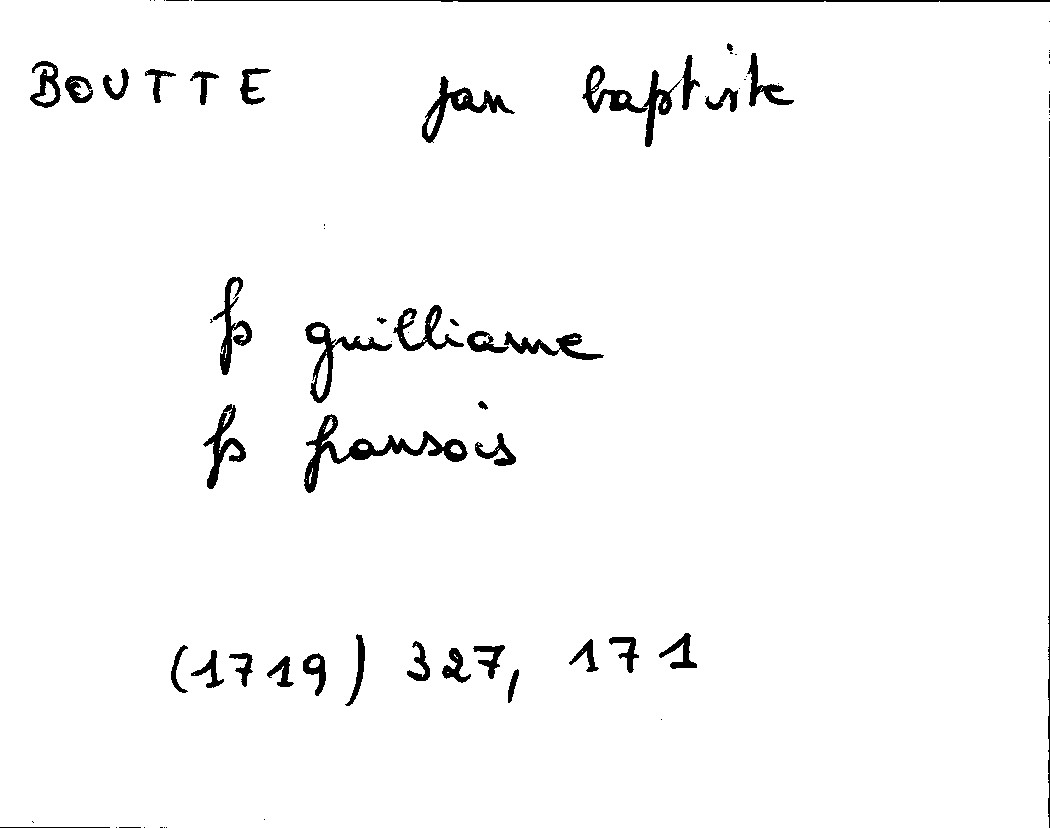 BOUTTE jan baptiste
fs guilliame
fs fransois
(1719) 327, 171